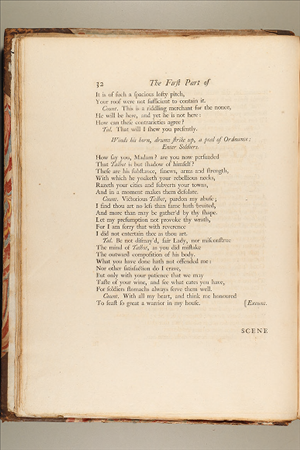 32 The First Part of
It is of such a spacious lofty pitch,
Your roof were not sufficient to contain it.
Count. This is a riddling merchant for the nonce,
He will be here, and yet he is not here:
How can these contrarieties agree?
Tal. That will I shew you presently.
Winds his horn, drums strike up, a peal of Ordnance:
Enter Soldiers.
How say you, Madam? are you now persuaded
That Talbot is but shadow of himself?
These are his substance, sinews, arms and strength,
With which he yoaketh your rebellious necks,
Razeth your cities and subverts your towns,
And in a moment makes them desolate.
Count. Victorious Talbot, pardon my abuse;
I find thou art no less than fame hath bruited,
And more than may be gather'd by thy shape.
Let my presumption not provoke thy wrath,
For I am sorry that with reverence
I did not entertain thee as thou art.
Tal. Be not dismay'd, fair Lady, nor misconstrue
The mind of Talbot, as you did mistake
The outward composition of his body.
What you have done hath not offended me:
Nor other satisfaction do I crave,
But only with your patience that we may
Taste of your wine, and see what cates you have,
For soldiers stomachs always serve them well.
Count. With all my heart, and think me honoured
To feast so great a warrior in my house. [Exeunt.
SCENE